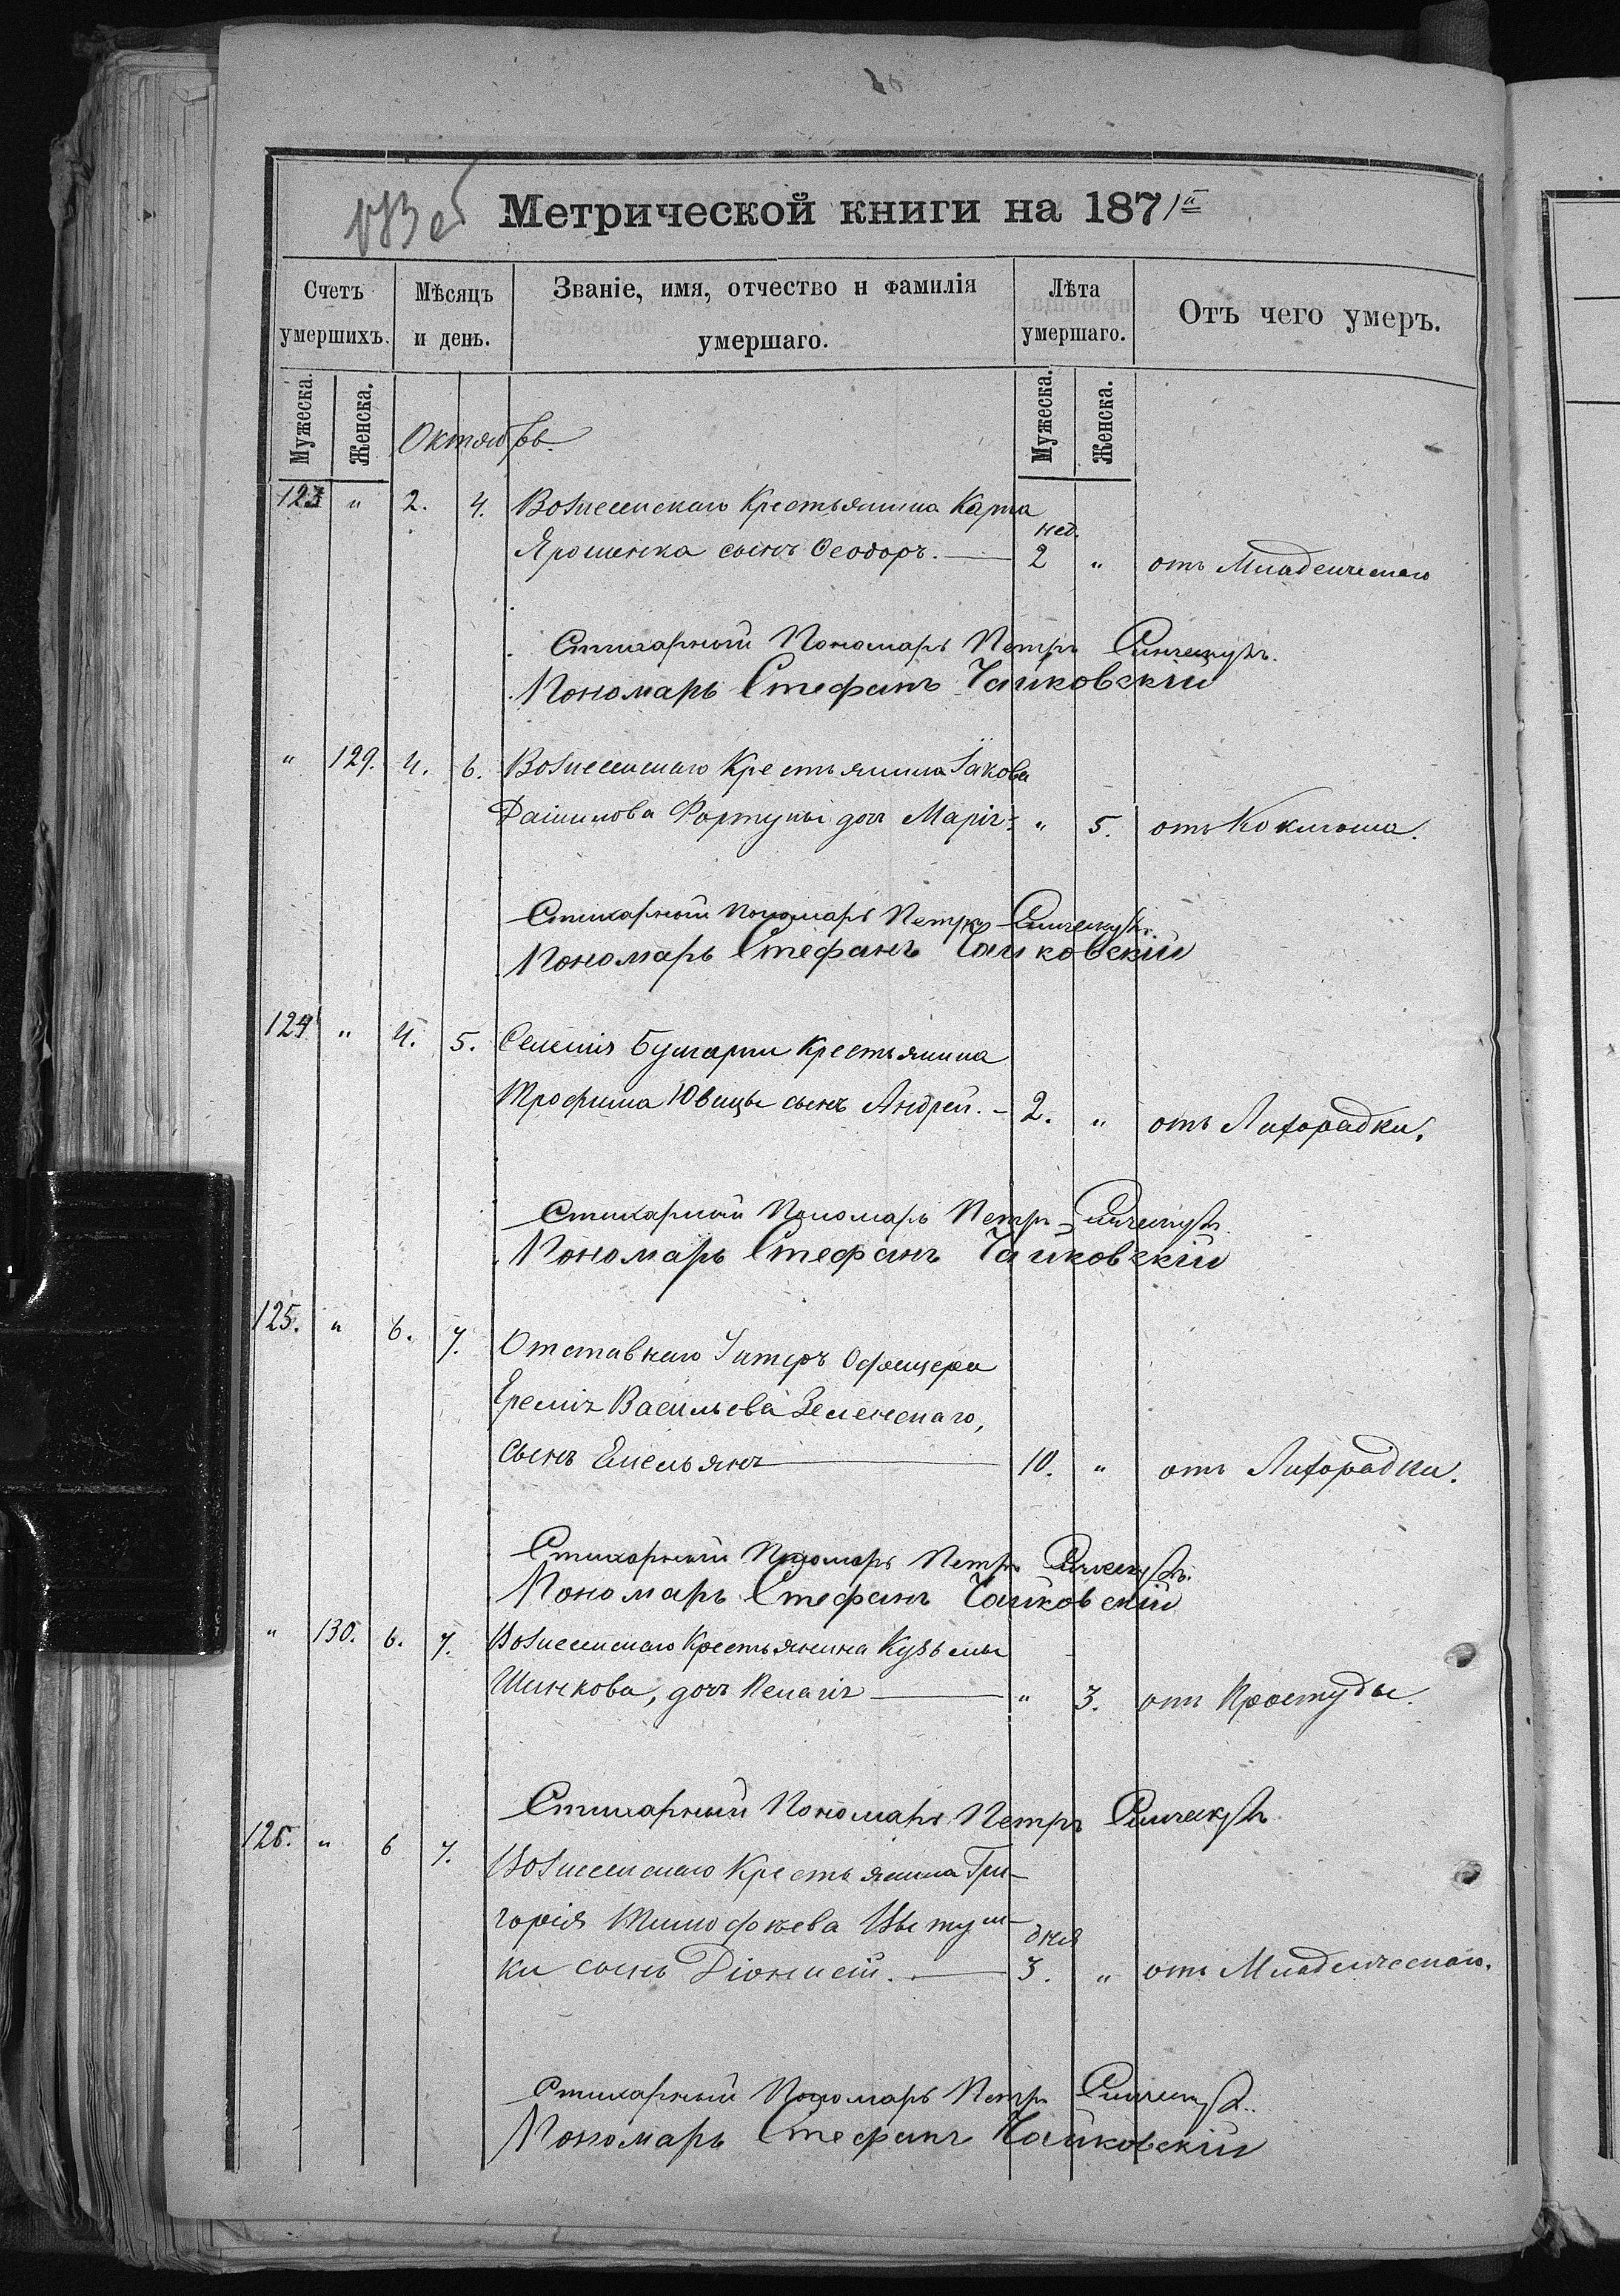 Метрической книги на 1871й
Счетъ умершихъ.
Мѣсяцъ и день.
Званіе, имя, отчество и фамилія умершаго.
Лѣта умершаго.
Отъ чего умеръ.
Мужеска. Женска. Мужеска. Женска.
Октябрь.
123 " 2. 4. Вознесенскаго Крестьянина Карпа
Ярошенка сынъ Ѳеодоръ. — нед. 2 " отъ Младенческаго
Стихарный Пономарь Петръ
Пономарь Стефанъ Чайковскій
" 129. 4. 6. Вознесенскаго Крестьянина Іакова
Даніилова Фортуны дочь Марія " 5. отъ Коклюша.
Стихарный Пономарь Петръ
Пономарь Стефанъ Чайковскій
124 " 4. 5. Селенія Булгарки Крестьянина
Трофима Ювицы сынъ Андрей. - 2. " отъ Лихорадки.
Стихарный Пономарь Петръ
Пономарь Стефанъ Чайковскій
125. " 6. 7. Отставнаго Унтеръ Офицера
Еремія Васильева Зеленскаго,
сынъ Емельянъ — 10. " отъ Лихорадки.
Стихарный Пономарь Петръ
Пономарь Стефанъ Чайковскій
" 130. 6. 7. Вознесенскаго Крестьянина Кузьмы
Шинкова, дочь Пелагія — " 3. отъ Простуды.
Стихарный Пономарь Петръ
126. " 6 7. Вознесенскаго Крестьянина Гри-
горія Тимофѣева
ки сынъ Діонисій. — дня 3. " отъ Младенческаго.
Стихарный Пономарь Петръ
Пономарь Стефанъ Чайковскій